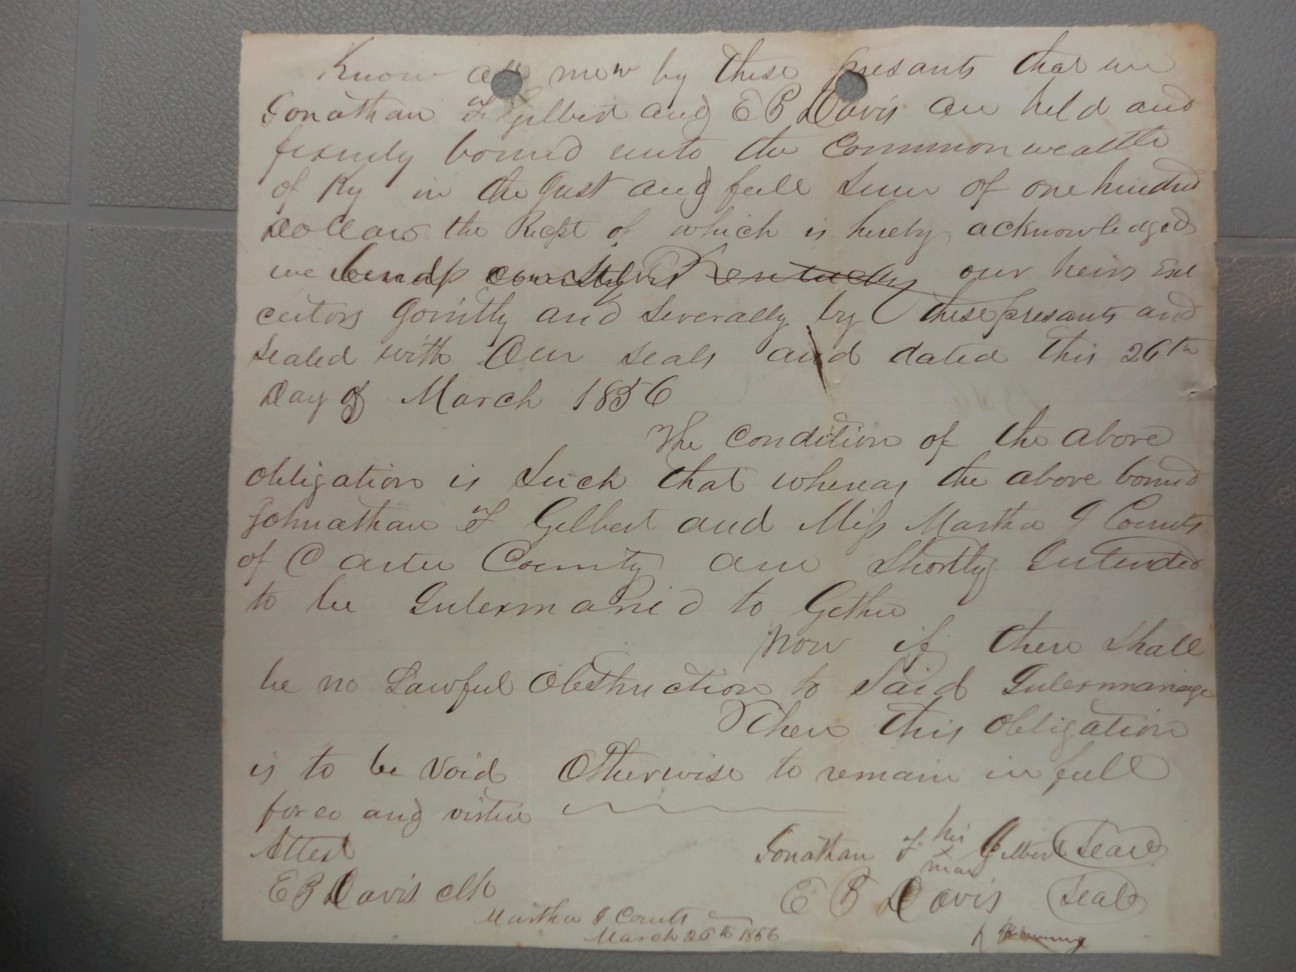 Know all men by these presants that we
Jonathan F Gilbert and E B Davis are held and
firmly bound unto the Commonwealth
of Ky in the Just and full Sum of one hundred
Dollars the Recpt of which is hereby acknowledged
we bind county Kentucky our heirs Exe
cutors Jointly and Severally by these presants and
Sealed with Our seals and dated this 26th
Day of March 1856
The condition of the above
obligation is Such that whereas the above bound
Johnathan F Gilbert and Miss Martha J Counts
of Carter County are Shortly Intended
to be Intermaried to Gether
Now if there Shall
be no Lawful Obstruction to Said Intermariage
Then this obligation
is to be Void Otherwise to remain in full
force and virtue
Attest Jonathan F his Gilbert Seal
x
mark
E B Davis clk E B Davis Seal
Martha J Counts
March 26th 1856